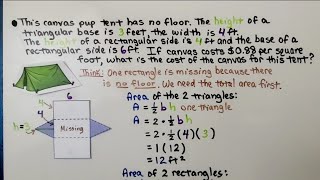 • This canvas pup tent has no floor. The height of a
triangular base is 3 feet, the width is 4 ft.
The height of a rectangular side is 4 ft and the base of a
rectangular side is 6 ft. If canvas costs $0.83 per square
foot, what is the cost of the canvas for this tent?
Think: One rectangle is missing because there
is no floor. We need the total area first.
6
4
4
h=3
Missing
Area of the 2 triangles:
A = ½ bh one triangle
A = 2 · ½ bh
= 2 · ½ (4)(3)
= 1 (12)
= 12 ft²
Area of 2 rectangles: